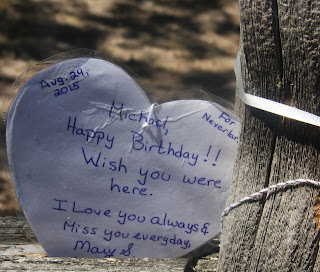 Aug. 29,
2015
For
Neverland
Michael,
Happy Birthday!!
Wish you were
here.
I Love you always &
Miss you everyday,
Mary S